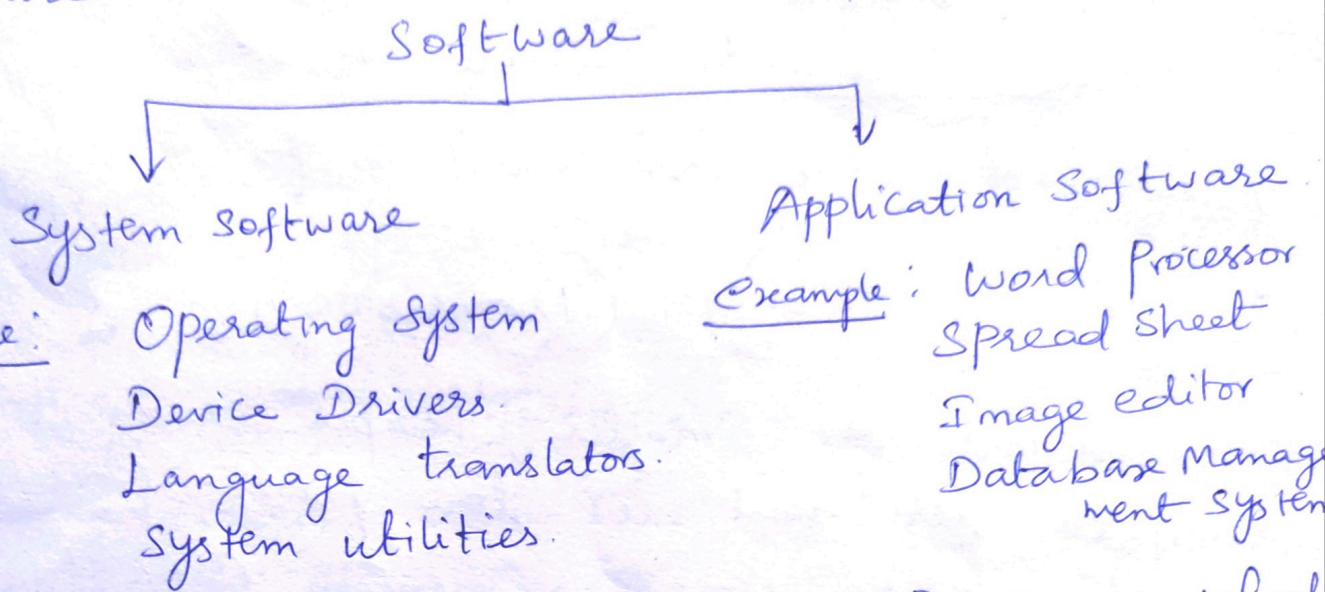 Software
System Software
Operating System
Device Drivers.
Language translators.
System utilities.
Application Software
Example : Word Processor
Spread Sheet
Image editor
Database Manage
ment System